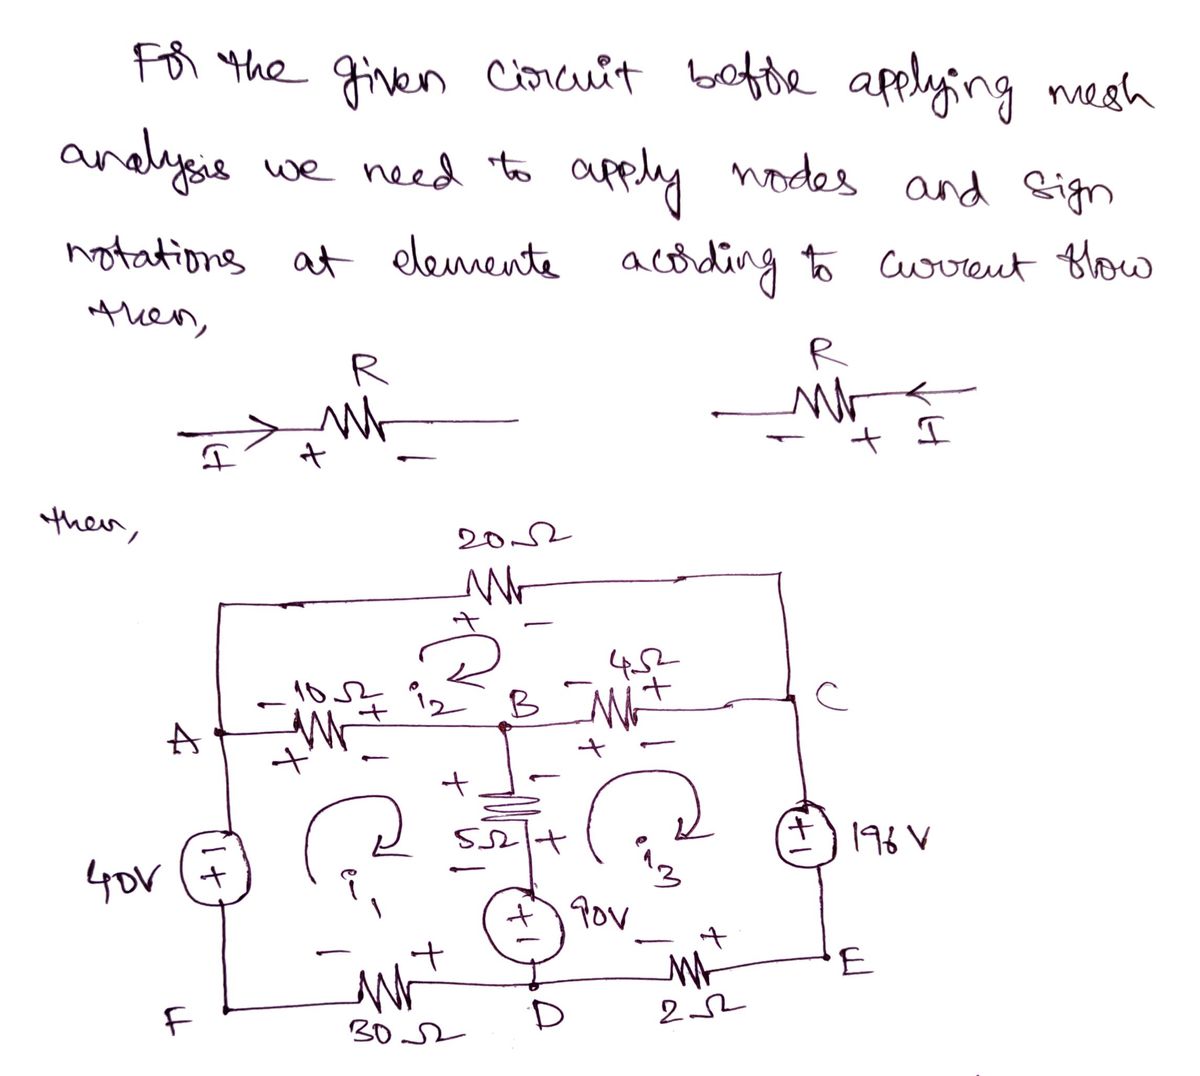 For the given circuit before applying mesh
analysis we need to apply nodes and sign
notations at elements acording to current flow
then,
R R
I + - - + I
then,
20Ω
+ -
4Ω
- 10Ω + i2 B - + C
A + - + -
+ -
5Ω +
-
40V - + i1 i3 + - 196V
+ - 90V
- + - + E
F 30Ω D 2Ω